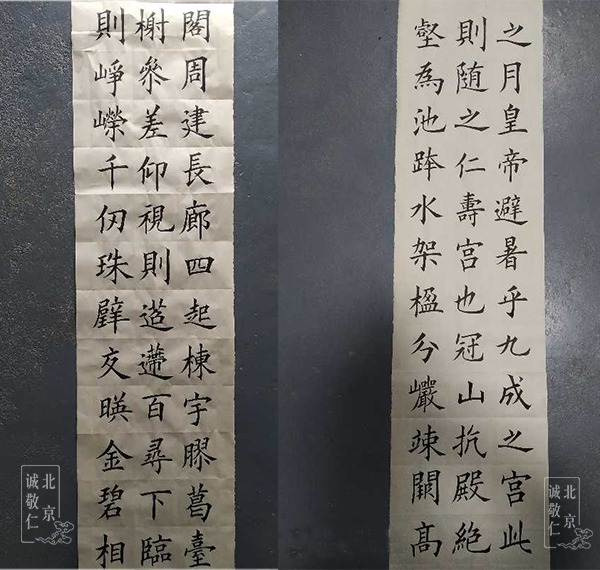 之月皇帝避暑乎九成之宮此
則隨之仁壽宮也冠山抗殿絕
壑為池跨水架楹分巖竦闕高
閣周建長廊四起棟宇膠葛臺
榭叅差仰視則迢遰百尋下臨
則崢嶸千仞珠璧交暎金碧相
北京
诚敬仁
北京
诚敬仁